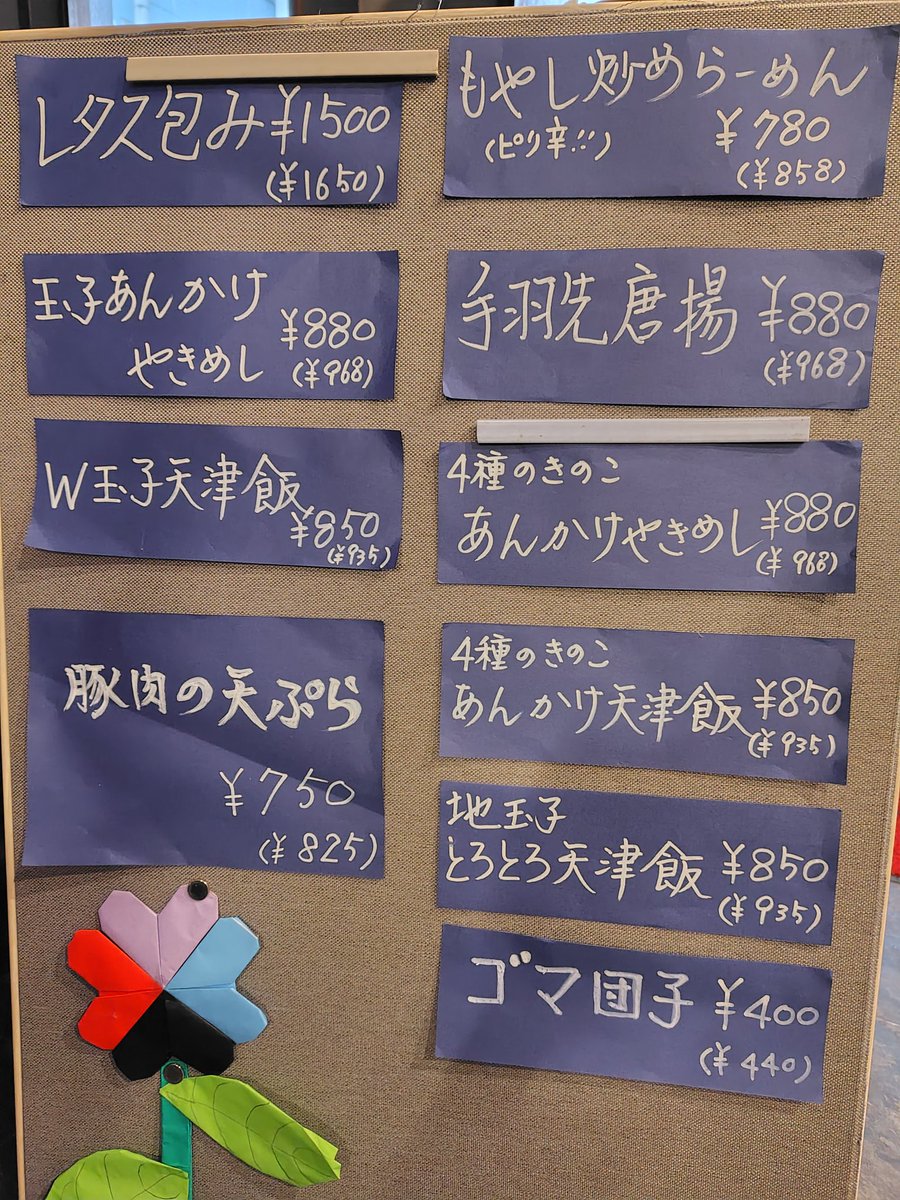 レタス包み ¥1500
(¥1650)
玉子あんかけ
やきめし ¥880
(¥968)
W玉子天津飯
¥850
(¥935)
豚肉の天ぷら
¥750
(¥825)
もやし炒めらーめん
(ピリ辛!!!) ¥780
(¥858)
手羽先唐揚 ¥880
(¥968)
4種のきのこ
あんかけやきめし ¥880
(¥968)
4種のきのこ
あんかけ天津飯 ¥850
(¥935)
地玉子
とろとろ天津飯 ¥850
(¥935)
ゴマ団子 ¥400
(¥440)